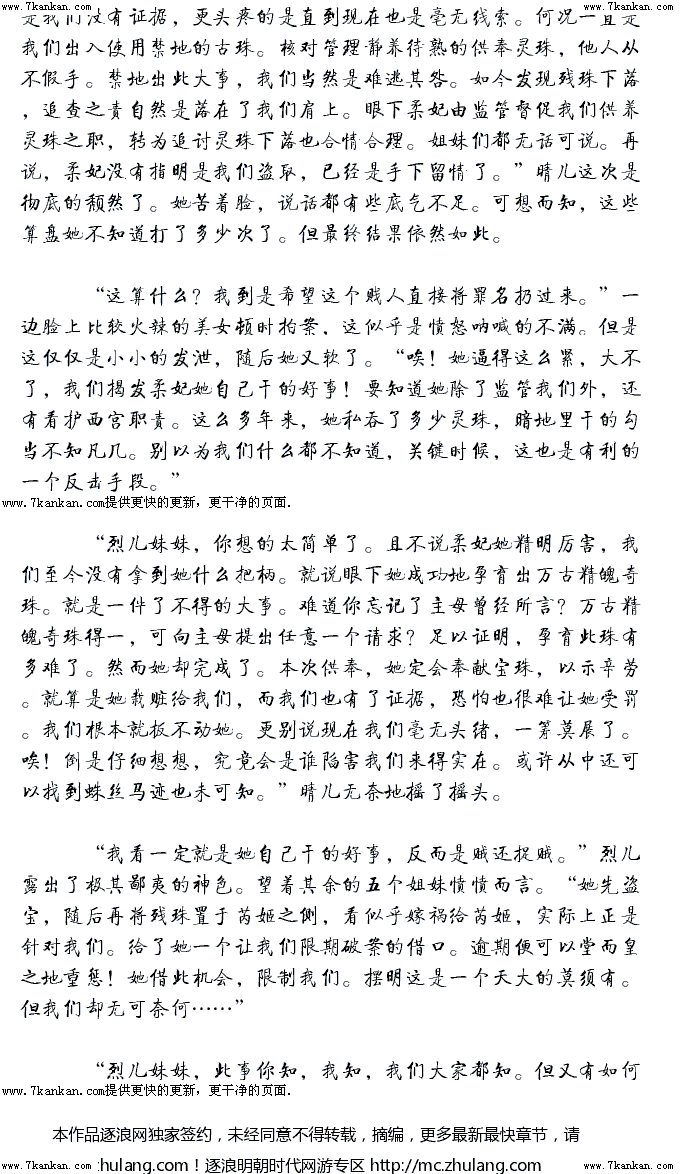 www.7kankan.com www.7kankan.com
是我们没有证据，更头疼的是直到现在也是毫无线索。何况一直是
我们出入使用禁地的古珠。核对管理静养待熟的供奉灵珠，他人从
不假手。禁地出此大事，我们当然是难逃其咎。如今发现残珠下落
，追查之责自然是落在了我们肩上。眼下柔妃由监管督促我们供养
灵珠之职，转为追讨灵珠下落也合情合理。姐妹们都无话可说。再
说，柔妃没有指明是我们盗取，已经是手下留情了。”晴儿这次是
彻底的颓然了。她苦着脸，说话都有些底气不足。可想而知，这些
算盘她不知道打了多少次了。但最终结果依然如此。
“这算什么？我到是希望这个贱人直接将罪名扔过来。”一
边脸上比较火辣的美女顿时拍案，这似乎是愤怒呐喊的不满。但是
这仅仅是小小的发泄，随后她又软了。“唉！她逼得这么紧，大不
了，我们揭发柔妃她自己干的好事！要知道她除了监管我们外，还
有看护西宫职责。这么多年来，她私吞了多少灵珠，暗地里干的勾
当不知凡几。别以为我们什么都不知道，关键时候，这也是有利的
一个反击手段。”
www.7kankan.com提供更快的更新，更干净的页面.
“烈儿妹妹，你想的太简单了。且不说柔妃她精明厉害，我
们至今没有拿到她什么把柄。就说眼下她成功地孕育出万古精魄奇
珠。就是一件了不得的大事。难道你忘记了主母曾经所言？万古精
魄奇珠得一，可向主母提出任意一个请求？足以证明，孕育此珠有
多难了。然而她却完成了。本次供奉，她定会奉献宝珠，以示辛劳
。就算是她栽赃给我们，而我们也有了证据，恐怕也很难让她受罚
。我们根本就扳不动她。更别说现在我们毫无头绪，一筹莫展了。
唉！倒是仔细想想，究竟会是谁陷害我们来得实在。或许从中还可
以找到蛛丝马迹也未可知。”晴儿无奈地摇了摇头。
“我看一定就是她自己干的好事，反而是贼还捉贼。”烈儿
露出了极其鄙夷的神色。望着其余的五个姐妹愤愤而言。“她先盗
宝，随后再将残珠置于芮姬之侧，看似乎嫁祸给芮姬，实际上正是
针对我们。给了她一个让我们限期破案的借口。逾期便可以堂而皇
之地重惩！她借此机会，限制我们。摆明这是一个天大的莫须有。
但我们却无可奈何……”
“烈儿妹妹，此事你知，我知，我们大家都知。但又有如何
www.7kankan.com提供更快的更新，更干净的页面.
本作品逐浪网独家签约，未经同意不得转载，摘编，更多最新最快章节，请
www.7kankan.com zhulang.com！逐浪明朝时代网游专区 http://mc.zhulang.com www.7kankan.com